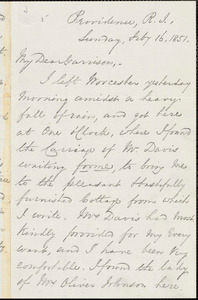 Providence, R. I.,
Sunday, Feby 16, 1851.
My Dear Garrison,—
I left Worcester yesterday
morning amidst a heavy
fall of rain, and got here
at One o'Clock, where I found
the carriage of Mr Davis
waiting for me, to bring me
to the pleasant & tastefully
furnished Cottage from which
I write. Mrs Davis had most
kindly provided for my every
want, and I have been very
comfortable. I found the lady
of Mr Oliver Johnson here.